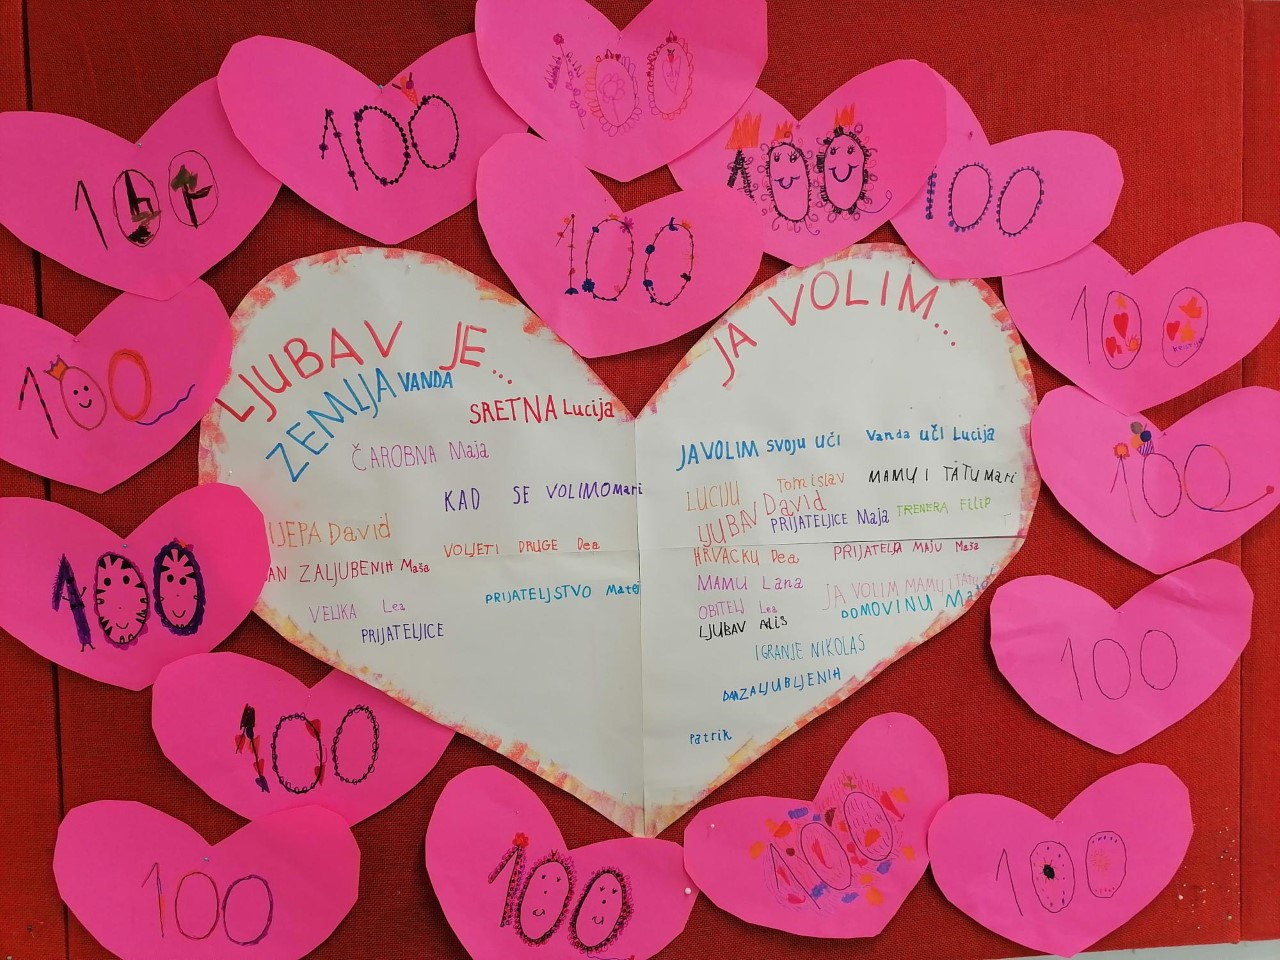 100
100
100
100
100
100
100
100
100
100
100
100
100
100
100
100
100
LJUBAV JE...
ZEMLJA VANDA
SRETNA Lucija
ČAROBNA Maja
KAD SE VOLIMO Mari
IJEPA David
VOLJETI DRUGE Dea
AN ZALJUBENIH Maša
PRIJATELJSTVO Matej
VELIKA Lea
PRIJATELJICE
JA VOLIM...
JA VOLIM svoju uči Vanda uči Lucija
LUCIJU Tomislav MAMU I TATU Mari
LJUBAV David
PRIJATELJICE Maja TRENERA FILIP
HRVACKU Dea PRIJATELJA MAJU Maša
MAMU Lana
JA VOLIM MAMU I TATU
OBITELJ Lea
DOMOVINU
LJUBAV Adis
IGRANJE NIKOLAS
DAN ZALJUBLJENIH
Patrik